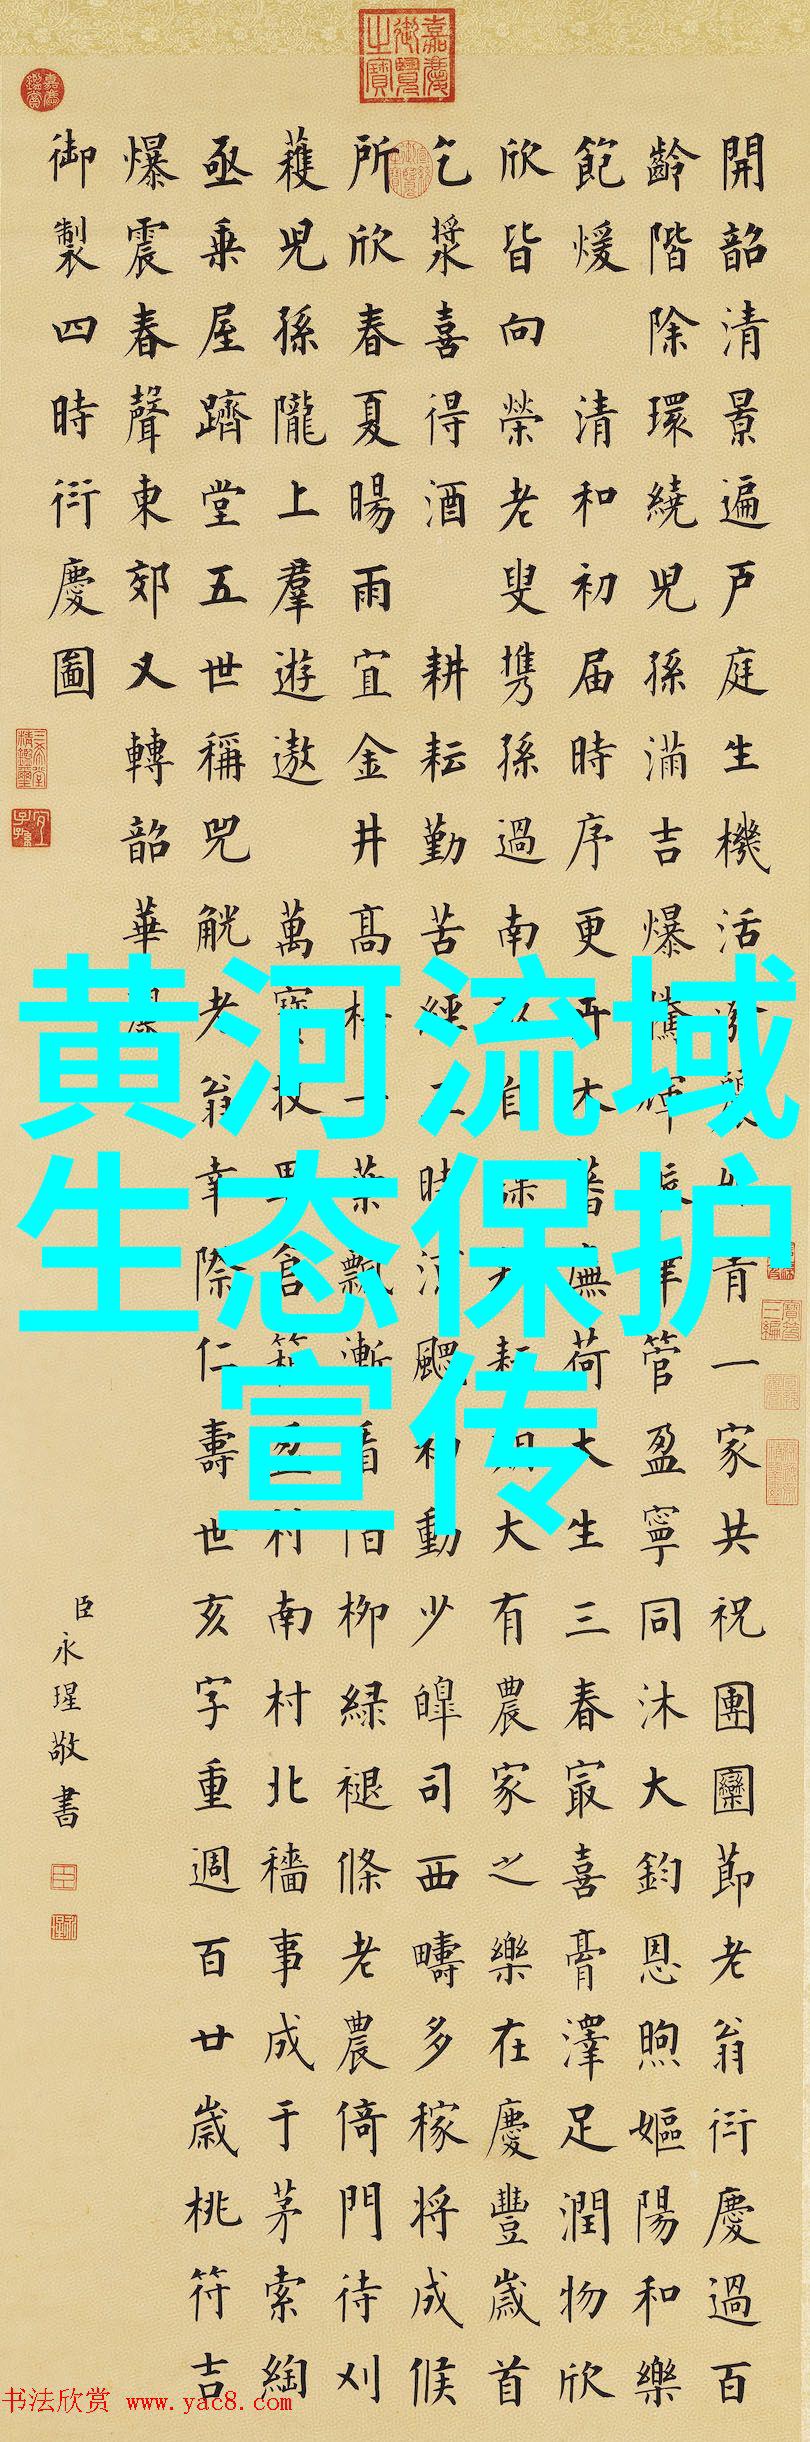 黄河流域
生态保护
宣传
開韶清景遍戶庭生機活青一家共祝團圞節老翁衍慶過百
齡階除環繞兒孫滿吉爆騰輝管盈寧同沐大鈞恩煦嫗陽和樂
飽煖 清和初屆時序更卉木蕃廡荷大生三春㝡喜膏澤足潤物欣
欣皆向榮老叟携孫過南大有農家之樂在慶豐歲首
乞漿喜得酒 耕耘勤苦經時颸動少皞司西疇多稼將成候
所欣春夏暘雨宜金井高梧一葉飄漸看階柳綠褪條老農倚門待刈
穫兒孫隴上羣遊遨 萬寶村南村北穡事成于茅索綯
亟乘屋躋堂五世稱兕觥老翁幸際仁壽世亥字重週百廿歲桃符吉
爆震春聲東郊又轉韶華
御製四時衍慶圖
臣永瑆敬書
嘉慶御覽之寶
嘉慶鑑賞
三希堂精鑑璽
宜子孫
书法欣赏 www.yac8.com